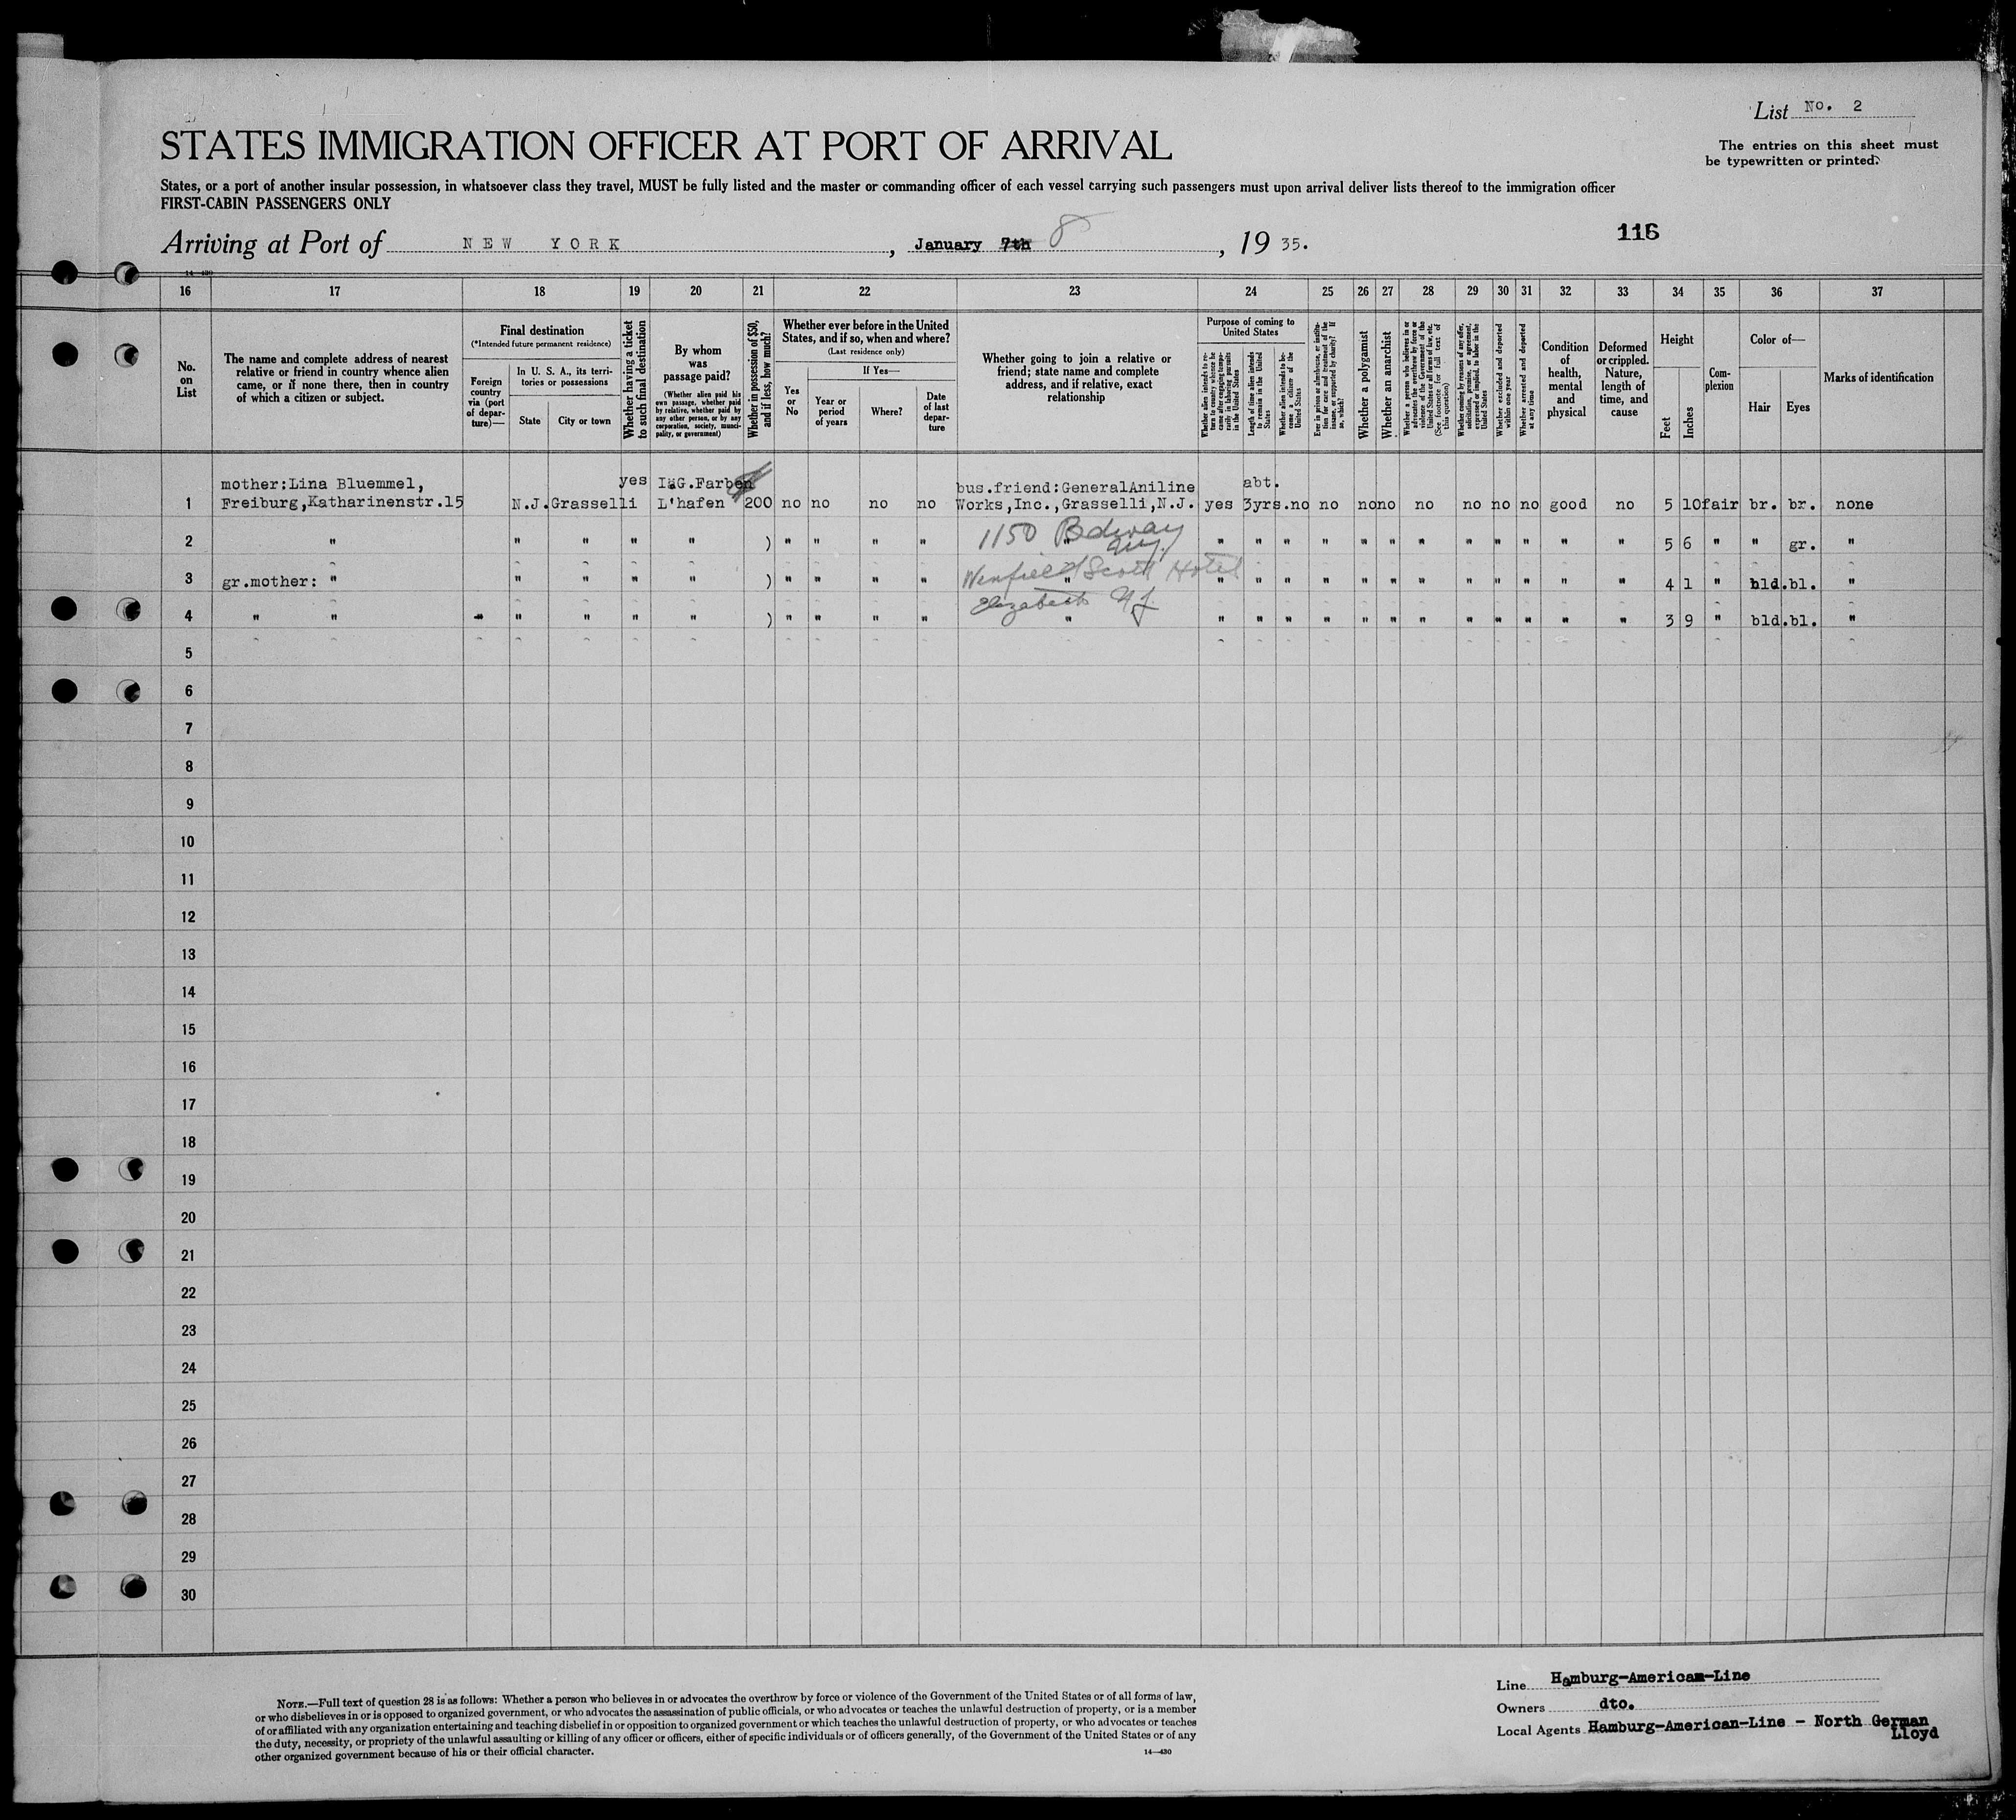 List No. 2
STATES IMMIGRATION OFFICER AT PORT OF ARRIVAL
The entries on this sheet must
be typewritten or printed.
States, or a port of another insular possession, in whatsoever class they travel, MUST be fully listed and the master or commanding officer of each vessel carrying such passengers must upon arrival deliver lists thereof to the immigration officer
FIRST-CABIN PASSENGERS ONLY
Arriving at Port of NEW YORK, January 7th 8, 19 35.
116
16 17 18 19 20 21 22 23 24 25 26 27 28 29 30 31 32 33 34 35 36 37
No.
on
List
The name and complete address of nearest
relative or friend in country whence alien
came, or if none there, then in country
of which a citizen or subject.
Final destination
(*Intended future permanent residence)
Foreign
country
via (port
of depar-
ture)—
In U. S. A., its terri-
tories or possessions
State
City or town
Whether having a ticket
to such final destination
By whom
was
passage paid?
(Whether alien paid his
own passage, whether paid
by relative, whether paid by
any other person, or by any
corporation, society, munici-
pality, or government)
Whether in possession of $50,
and if less, how much?
Whether ever before in the United
States, and if so, when and where?
(Last residence only)
Yes
or
No
If Yes—
Year or
period
of years
Where?
Date
of last
depar-
ture
Whether going to join a relative or
friend; state name and complete
address, and if relative, exact
relationship
Purpose of coming to
United States
Whether alien intends to re-
turn to country whence he
came after engaging tempo-
rarily in laboring pursuits
in the United States
Length of time alien intends
to remain in the United
States
Whether alien intends to be-
come a citizen of the
United States
Ever in prison or almshouse, or institu-
tion for care and treatment of the
insane, or supported by charity? If
so, which?
Whether a polygamist
Whether an anarchist
Whether a person who believes in or
advocates the overthrow by force or
violence of the Government of the
United States or all forms of law, etc.
(See footnote for full text of
this question)
Whether coming by reasons of any offer,
solicitation, promise, or agreement,
expressed or implied, to labor in the
United States
Whether excluded and deported
within one year
Whether arrested and deported
at any time
Condition
of
health,
mental
and
physical
Deformed
or crippled.
Nature,
length of
time, and
cause
Height
Feet
Inches
Com-
plexion
Color of—
Hair
Eyes
Marks of identification
mother:Lina Bluemmel, yes I.G.Farben bus.friend:GeneralAniline abt.
1 Freiburg,Katharinenstr.15 N.J. Grasselli L'hafen 200 no no no no Works,Inc.,Grasselli,N.J. yes 3yrs. no no no no no no no no good no 5 10 fair br. br. none
1150 Bdway
2 " " " " " ) " " " " " " " " " " " " " " " " " " 5 6 " " gr. "
N.Y.
Winfield Scott Hotel
3 gr.mother: " " " " " ) " " " " " " " " " " " " " " " " " " 4 1 " bld. bl. "
Elizabeth N.J.
4 " " " " " " " ) " " " " " " " " " " " " " " " " " " 3 9 " bld. bl. "
5
6
7
8
9
10
11
12
13
14
15
16
17
18
19
20
21
22
23
24
25
26
27
28
29
30
NOTE.—Full text of question 28 is as follows: Whether a person who believes in or advocates the overthrow by force or violence of the Government of the United States or of all forms of law,
or who disbelieves in or is opposed to organized government, or who advocates the assassination of public officials, or who advocates or teaches the unlawful destruction of property, or is a member
of or affiliated with any organization entertaining and teaching disbelief in or opposition to organized government or which teaches the unlawful destruction of property, or who advocates or teaches
the duty, necessity, or propriety of the unlawful assaulting or killing of any officer or officers, either of specific individuals or of officers generally, of the Government of the United States or of any
other organized government because of his or their official character.
14—430
Line Hamburg-American-Line
Owners dto.
Local Agents Hamburg-American-Line - North German
Lloyd